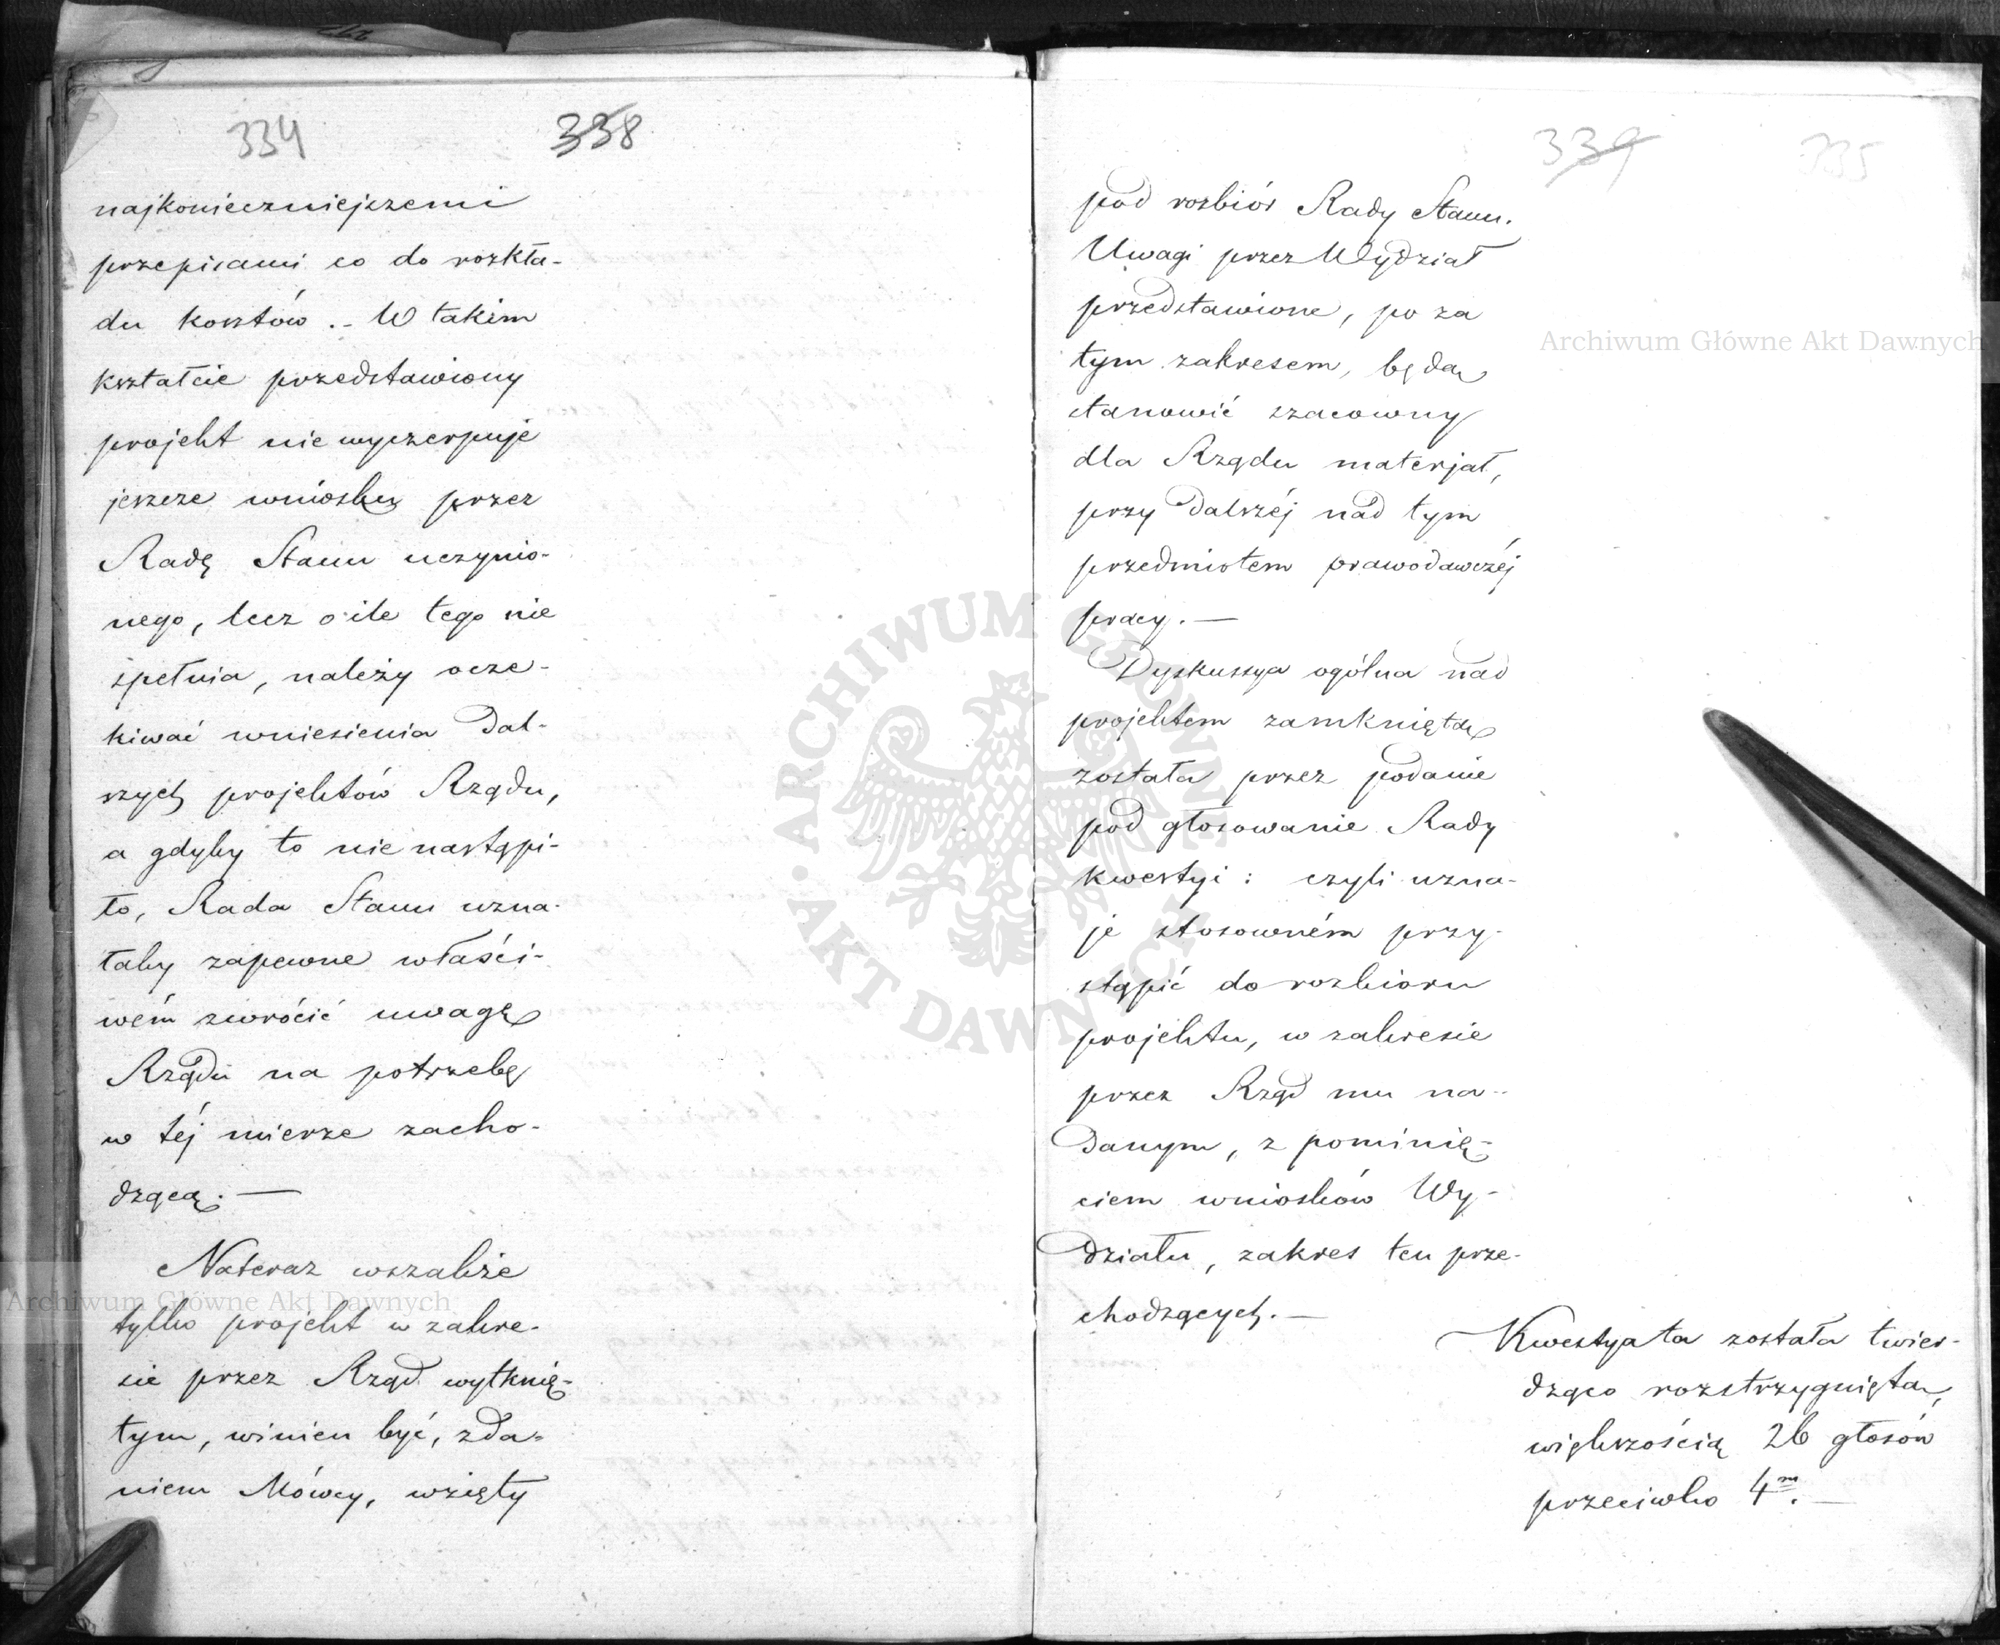 334
338
najkonieczniejszemi
przepisami co do rozkła-
du kosztów.- W takim
kształcie przedstawiony
projekt nie wyczerpuje
jeszcze wniosku przez
Radę Stanu uczynio-
nego, lecz o ile tego nie
spełnia, należy ocze-
kiwać wniesienia dal-
szych projektów Rządu,
a gdyby to nie nastąpi-
ło, Rada Stanu uzna-
łaby zapewne właści-
wém zwrócić uwagę
Rządu na potrzebę
w téj mierze zacho-
dzącą.—
Nateraz wszakże
tylko projekt w zakre-
sie przez Rząd wytknię-
tym, winien być, zda-
niem Mówcy, wzięty
339
335
pod rozbiór Rady Stanu.
Uwagi przez Wydział
przedstawione, po za
tym zakresem, będą
stanowić szacowny
dla Rządu materjał,
przy dalszéj nad tym
przedmiotem prawodawczéj
pracy.—
Dyskussya ogólna nad
projektem zamkniętą
została przez podanie
pod głosowanie Rady
kwestyi: czyli uzna-
je stosowném przy-
stąpić do rozbioru
projektu, w zakresie
przez Rząd mu na-
danym, z pominię-
ciem wniosków Wy-
działu, zakres ten prze-
chodzących.—
Kwestya ta została twier-
dząco rozstrzygniętą,
większością 26 głosów
przeciwko 4m.—
Archiwum Główne Akt Dawnych
Archiwum Główne Akt Dawnych
ARCHIWUM GŁÓWNE • AKT DAWNYCH